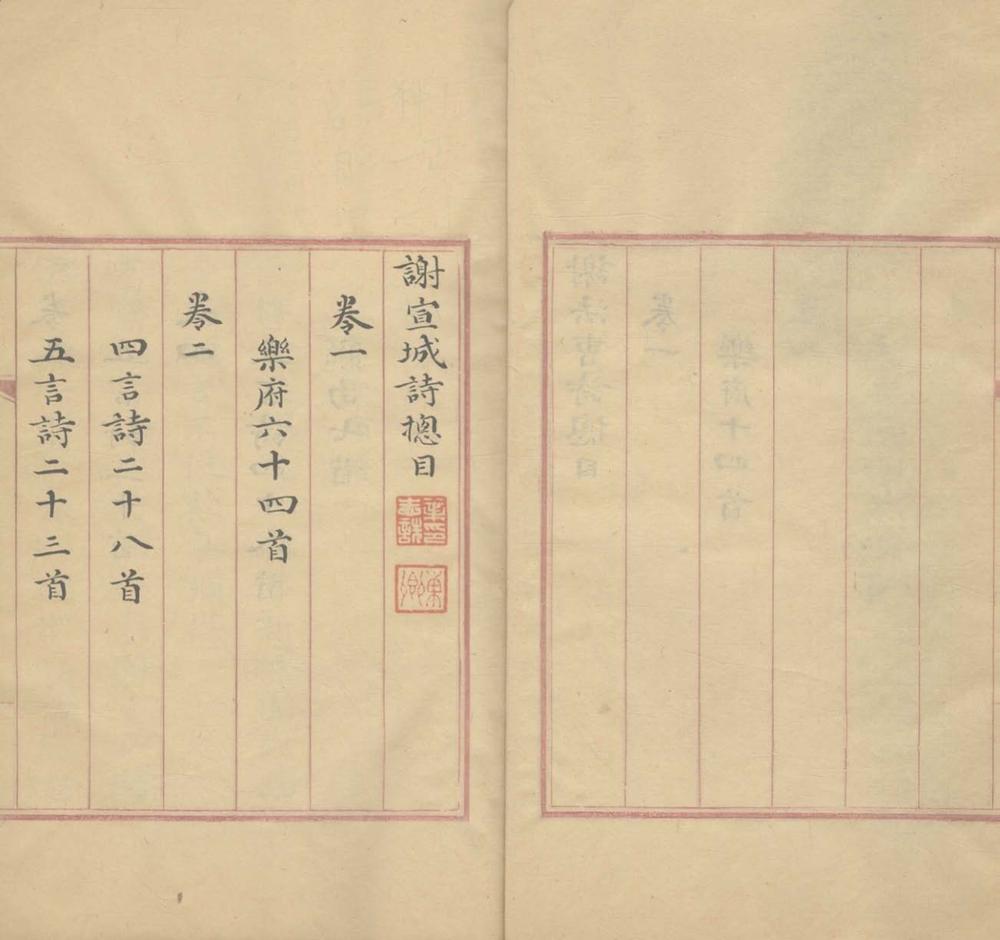 謝宣城詩摠目
卷一
樂府六十四首
卷二
四言詩二十八首
五言詩二十三首